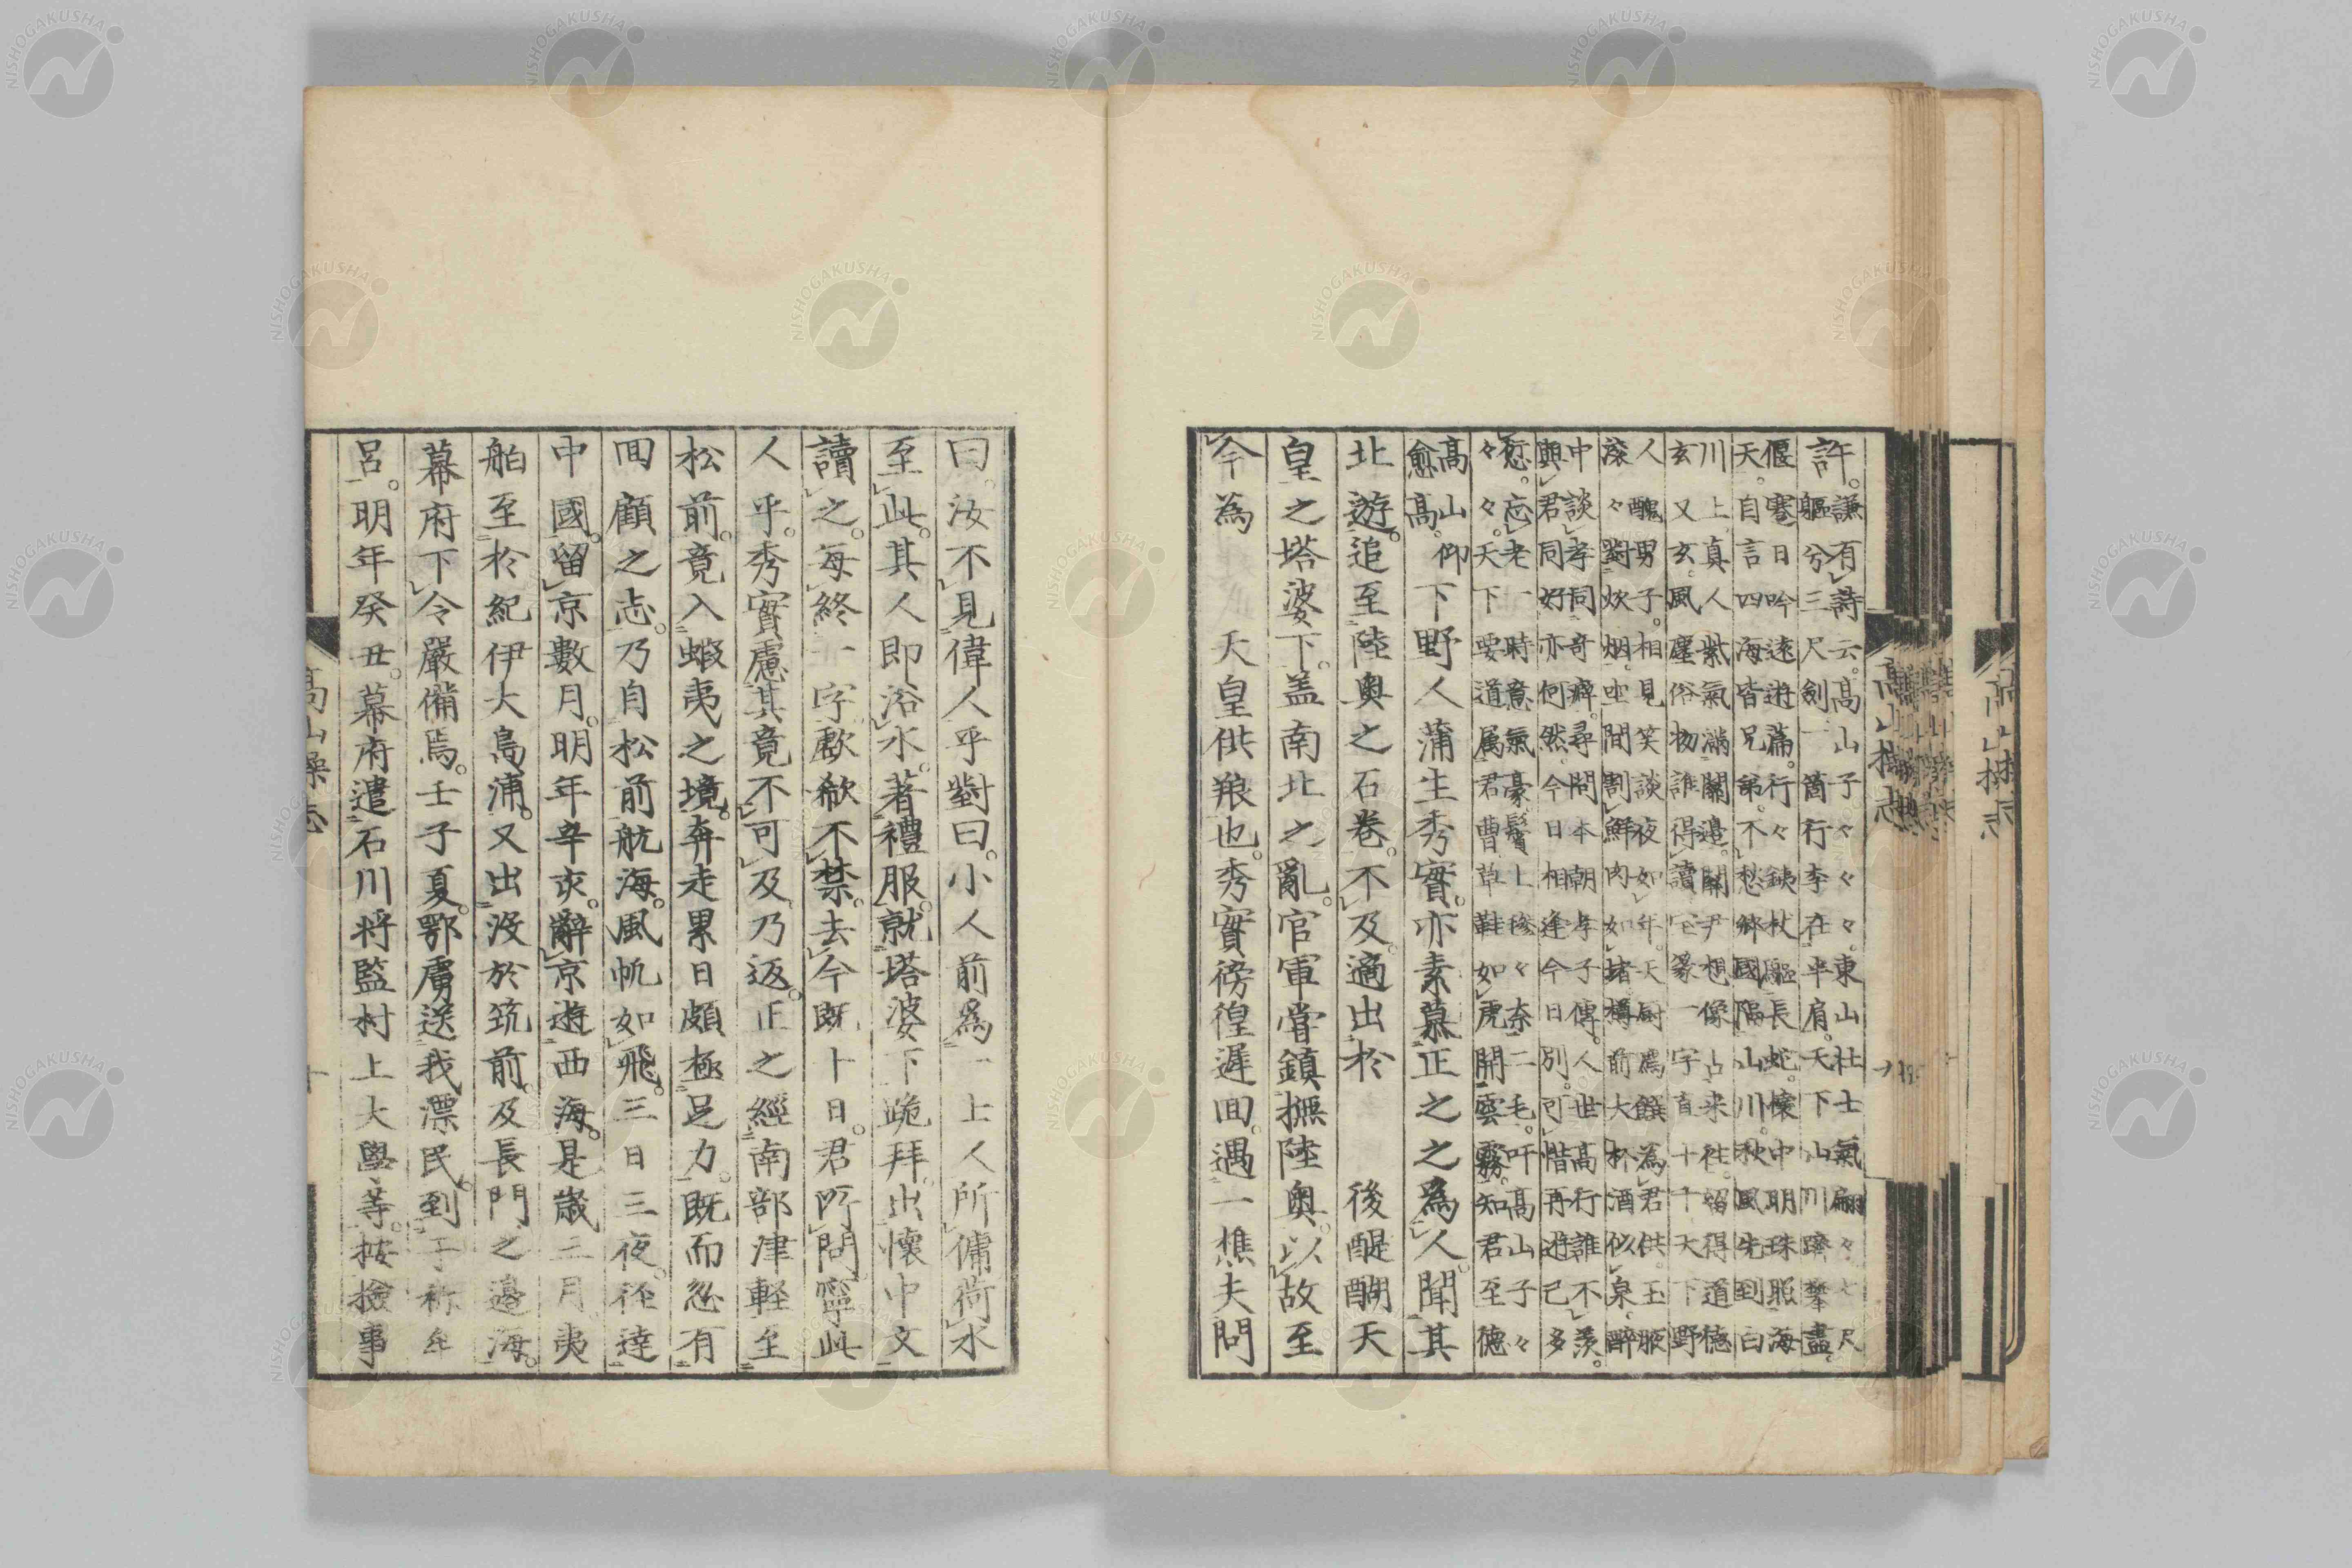 許。謙有詩云。高山子々々々。東山杜士氣翩々七尺
軀兮三尺劍。一箇行李在半肩。天下山川躋攀盡。
偃蹇日吟遠遊篇。行々鋏杖驅長蛇。懷中明珠照海
天。自言四海皆兄弟。不愁鄉國隔山川。秋風先到白
川上。真人紫氣滿關邊。關尹想像占来往。留得道德
玄又玄。風塵俗物誰得讀。宅篆一字直十千天下野
人醜男子。相見笑談夜如年。天厨薦饌為君供。玉腴
滾々對炊烟。坐間割鮮肉如堵。樽前大杯酒似泉。醉
中談孝同奇癖。尋問本朝孝子傳。人世高行誰不羨。
與君同好亦何然。今日相逢今日別。可惜再遊已多
愆。忘老一時意氣豪。鬢上慘々奈二毛。吁高山子々
々々。天下要道属君曹草鞋如虎開雲霧。知君至德
愈高。高山仰 下野人蒲生秀實。亦素慕正之之爲人。聞其
北遊。追至陸奥之石卷。不及。適出於 後醍醐天
皇之塔婆下。盖南北之亂。官軍嘗鎮撫陸奥。以故至
今為 天皇供粮也。秀實徬徨遲回。遇一樵夫問
曰。汝不見偉人乎對曰。小人前爲一上人所傭荷水
至此。其人即浴水。著禮服。就塔婆下跪拜。出懷中文
讀之。每終一字歔欷不禁。去今既十日。君所問。寧此
人乎。秀實慮其竟不可及。乃返。正之經南部津軽至
松前。竟入蝦夷之境。奔走累日頗極足力。既而忽有
回顧之志。乃自松前航海。風帆如飛。三日三夜。徑達
中國。留京數月。明年辛亥。辭京遊西海。是歳二月。夷
舶至於紀伊大島浦。又出没於筑前。及長門之邊海。
幕府下令嚴備焉。壬子夏。鄂虜送我漂民。到于祢牟
呂。明年癸丑。幕府遣石川将監村上大學等。按撿事
高山操志